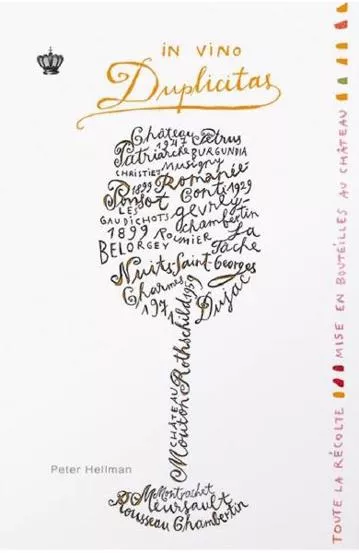 in vino
Duplicitas
Château Pétrus
1947
Patriarche BURGUNDIA
CHRISTIES Musigny
1899 Romanée
Ponsot Conti 1929
LES gevrey
GAUDICHOTS chambertin
1899 ROUMIER La
BELORGEY Tâche
Nuits-Saint-Georges
Charmes
1971 Dujac
CHÂTEAU
Mouton Rothschild 1959
Montrachet
Meursault
Rousseau Chambertin
Peter Hellman
TOUTE LA RÉCOLTE MISE EN BOUTEILLES AU CHÂTEAU